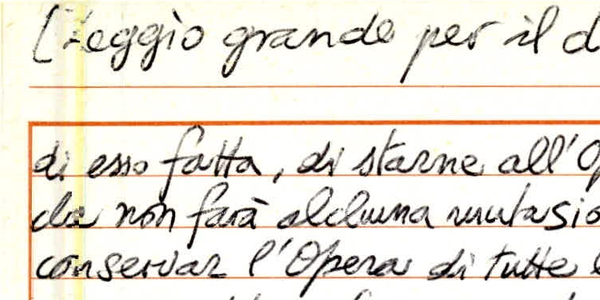 [Leggio grande per il d
di esso fatta, di starne all'Op
da non farà alchuna mutasio
conservar l'Opera di tutte l